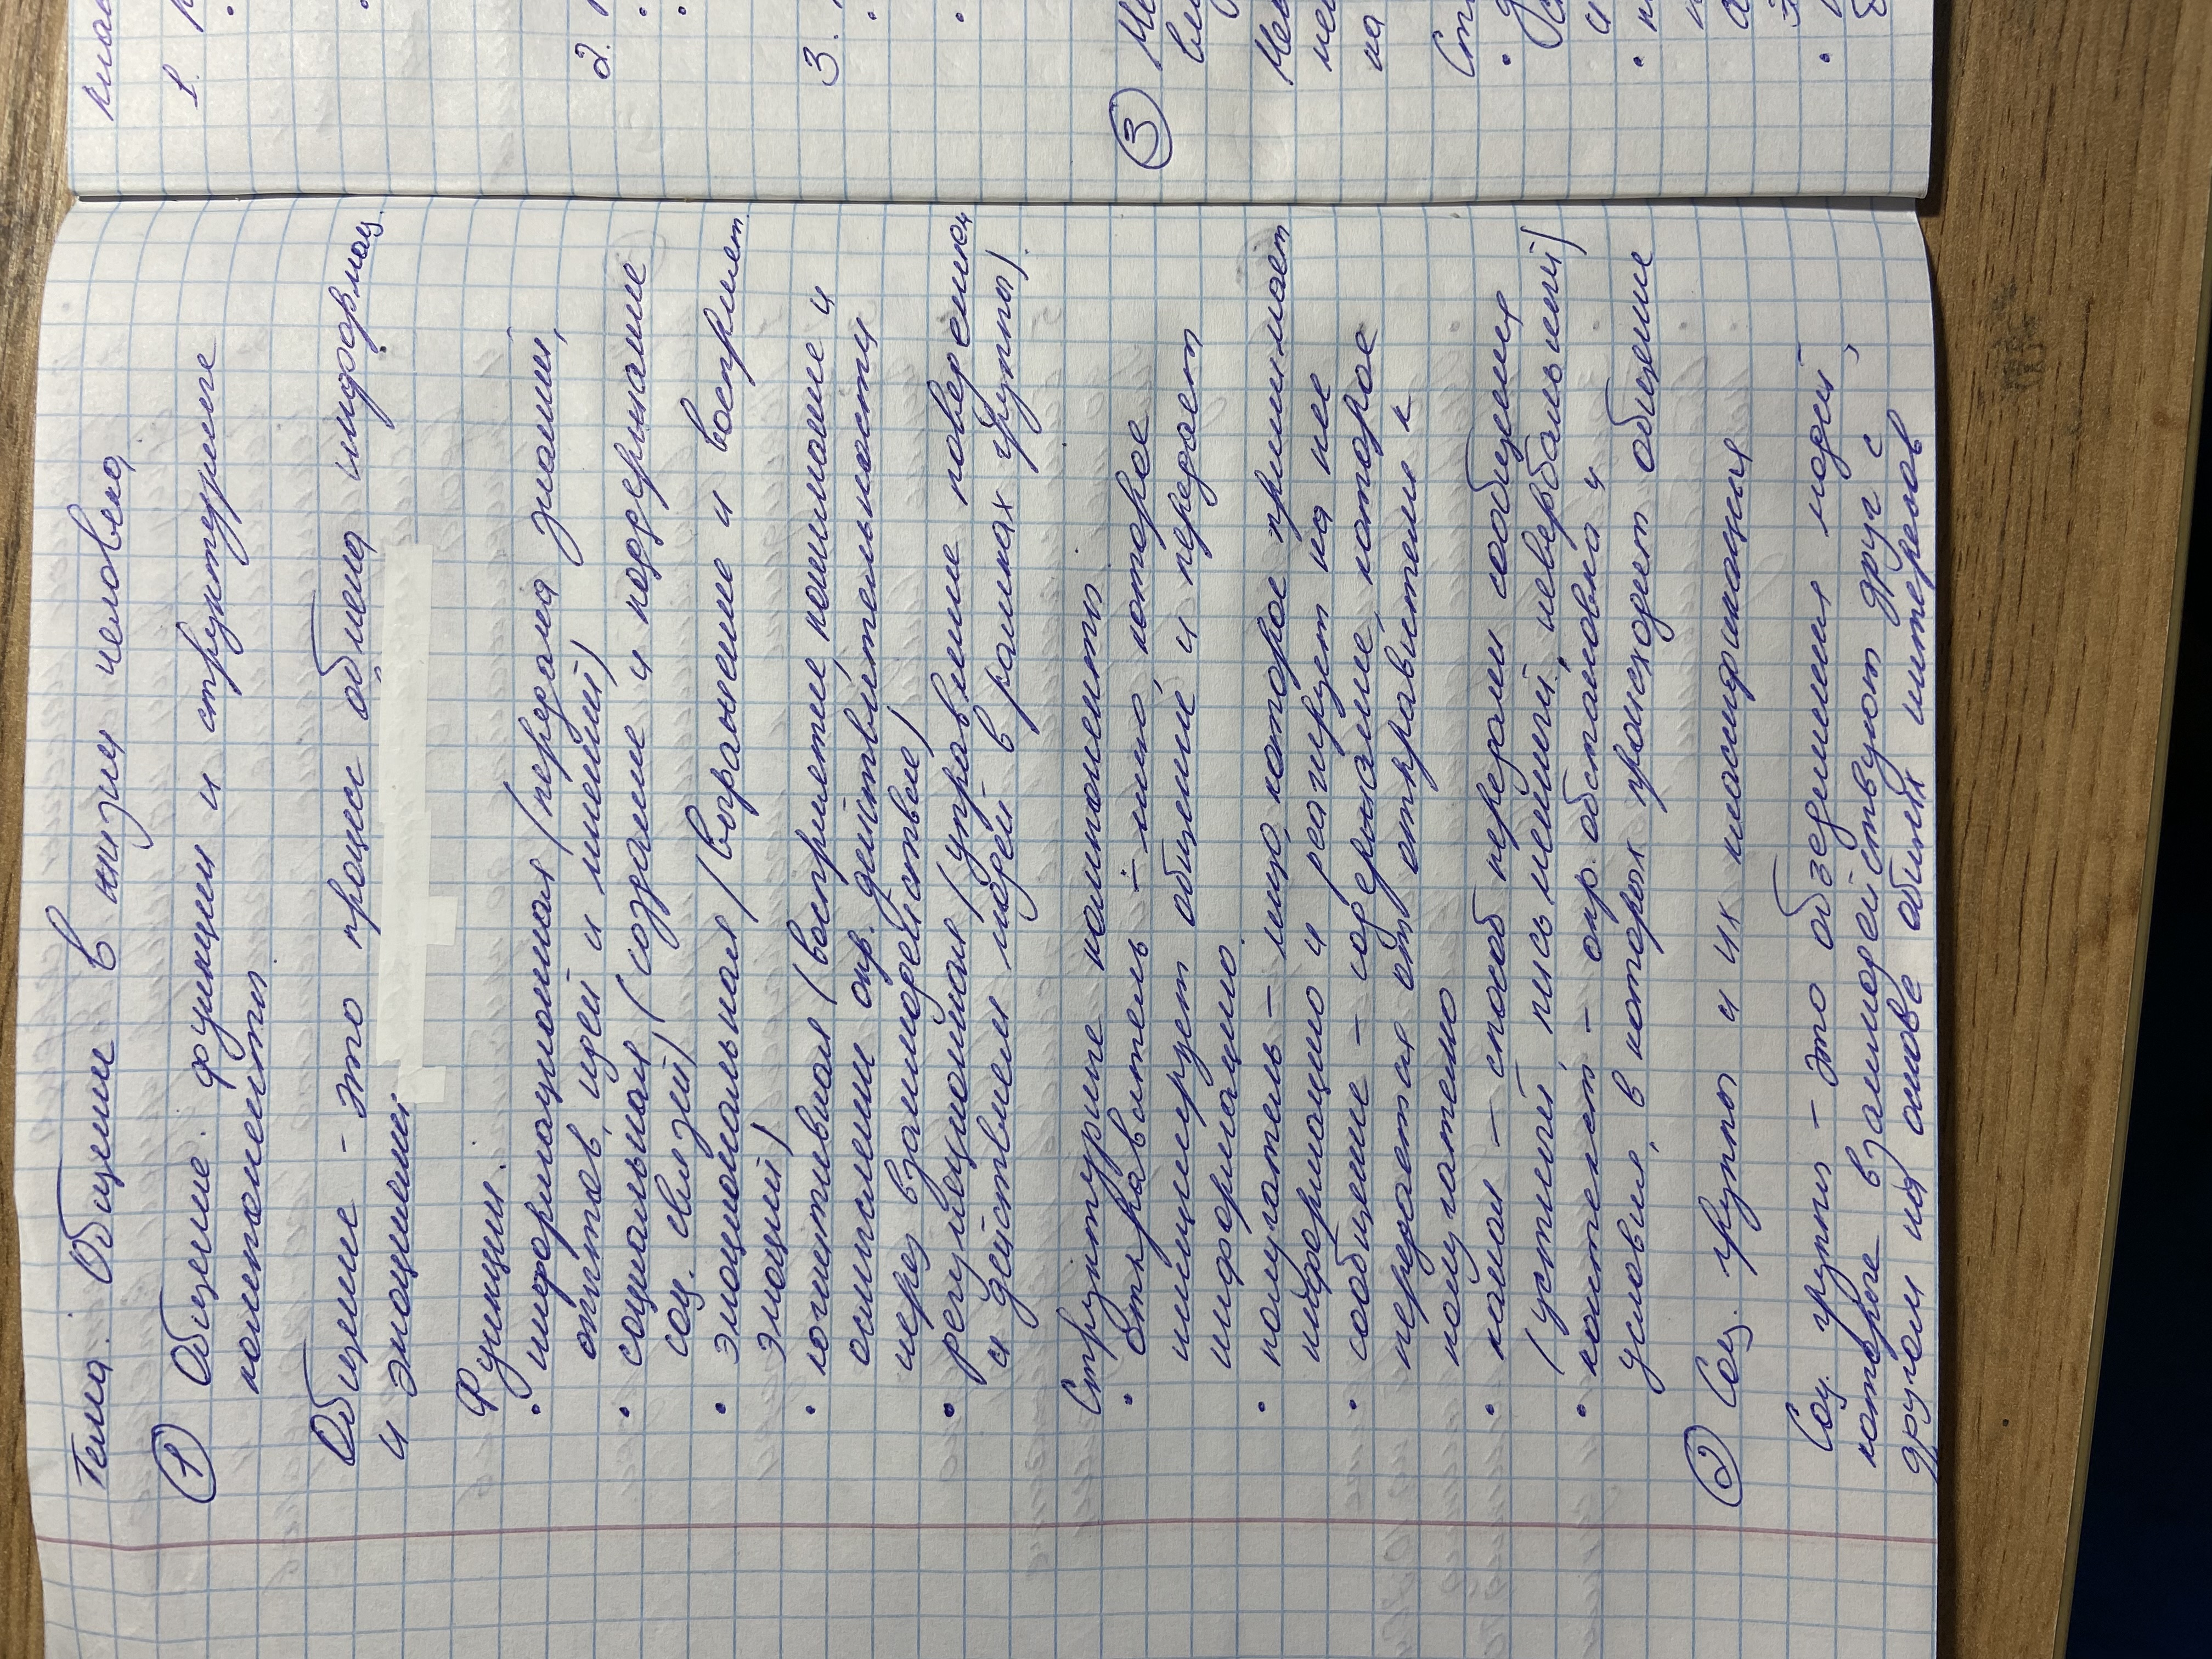 Тема: Общение в жизни человека
① Общение: функции и структурные
компоненты.
Общение - это процесс обмена информац.
и эмоциями
Функции:
• информационная (передача знаний,
опытов, идей и мнений)
• социальная (создание и поддержание
соц. связей)
• эмоциональная (выражение и восприят.
эмоций)
• когнитивная (восприятие, понимание и
осмысление окр. действительности
через взаимодействие)
• регуляционная (управление поведением
и действием людей в рамках группы).
Структурные компоненты:
• отправитель - лицо, которое
инициирует общение и передает
информацию.
• получатель - лицо, которое принимает
информацию и реагирует на нее
• сообщение - содержание, которое
передается от отправителя к
получателю
• канал - способ передачи сообщения
(устный, письменный, невербальный)
• контекст - опр. обстановка и
условия, в которых происходит общение
② Соц. группы и их классификация
Соц. группы - это объединения людей,
которые взаимодействуют друг с
другом на основе общих интересов
клас
1.
•
•
2.
•
•
3.
•
•
③ Ме
вл
Ме
не
на
Ст
•
и
•
•